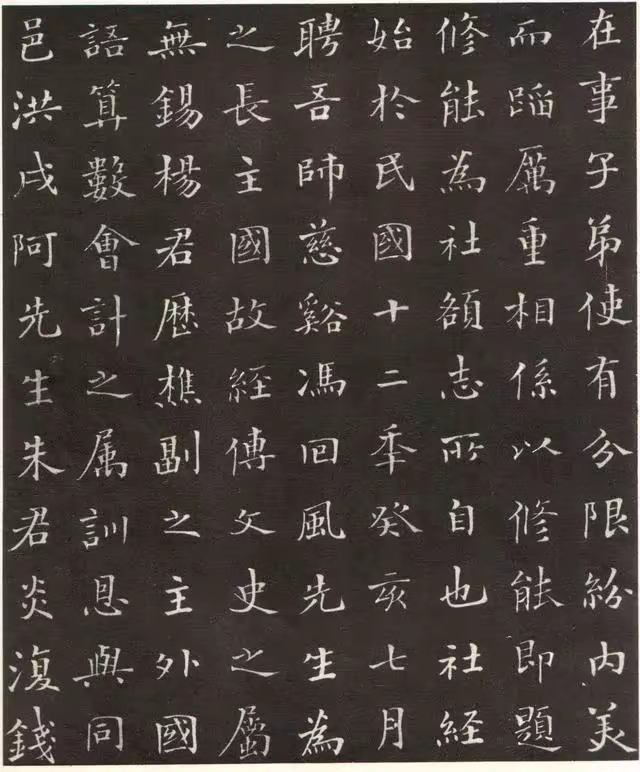 在事子弟使有分限紛內美
而蹈厲重相係以修能即題
修能為社額志所自也社經
始於民國十二秊癸亥七月
聘吾師慈谿馮回風先生為
之長主國故經傳文史之屬
無錫楊君歷樵副之主外國
語算數會計之属訓恳與同
邑洪戌阿先生朱君炎復錢